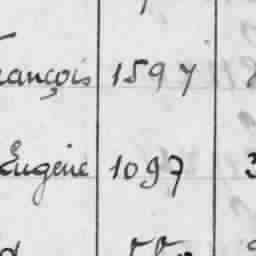 rançois 1597
Eugène 1097 3